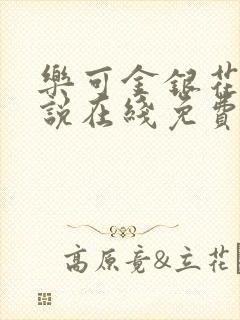 樂可金銀花
說在綫免費
高原竟&立花